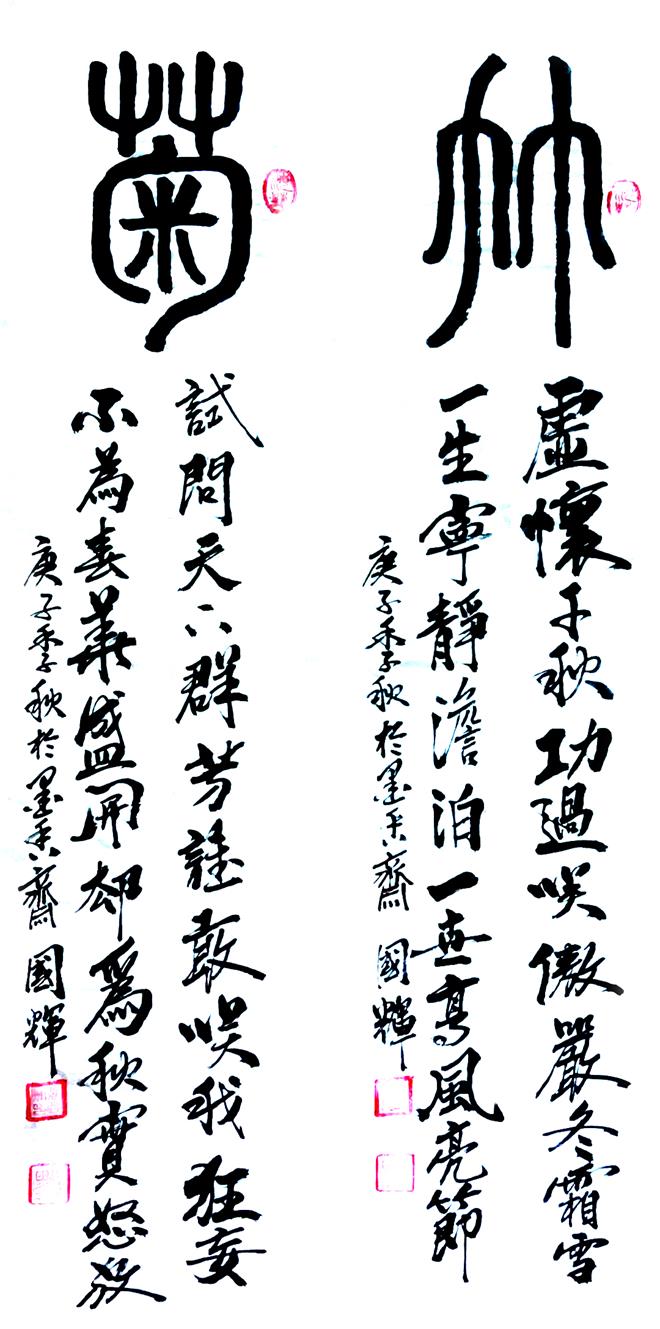 竹
虛懷千秋功過咲傲嚴冬霜雪
一生寧靜澹泊一世高風亮節
庚子季秋於墨香齋 國輝
菊
試問天下群芳誰敢咲我狂妄
不為春華盛開却為秋實怒放
庚子季秋於墨香齋 國輝